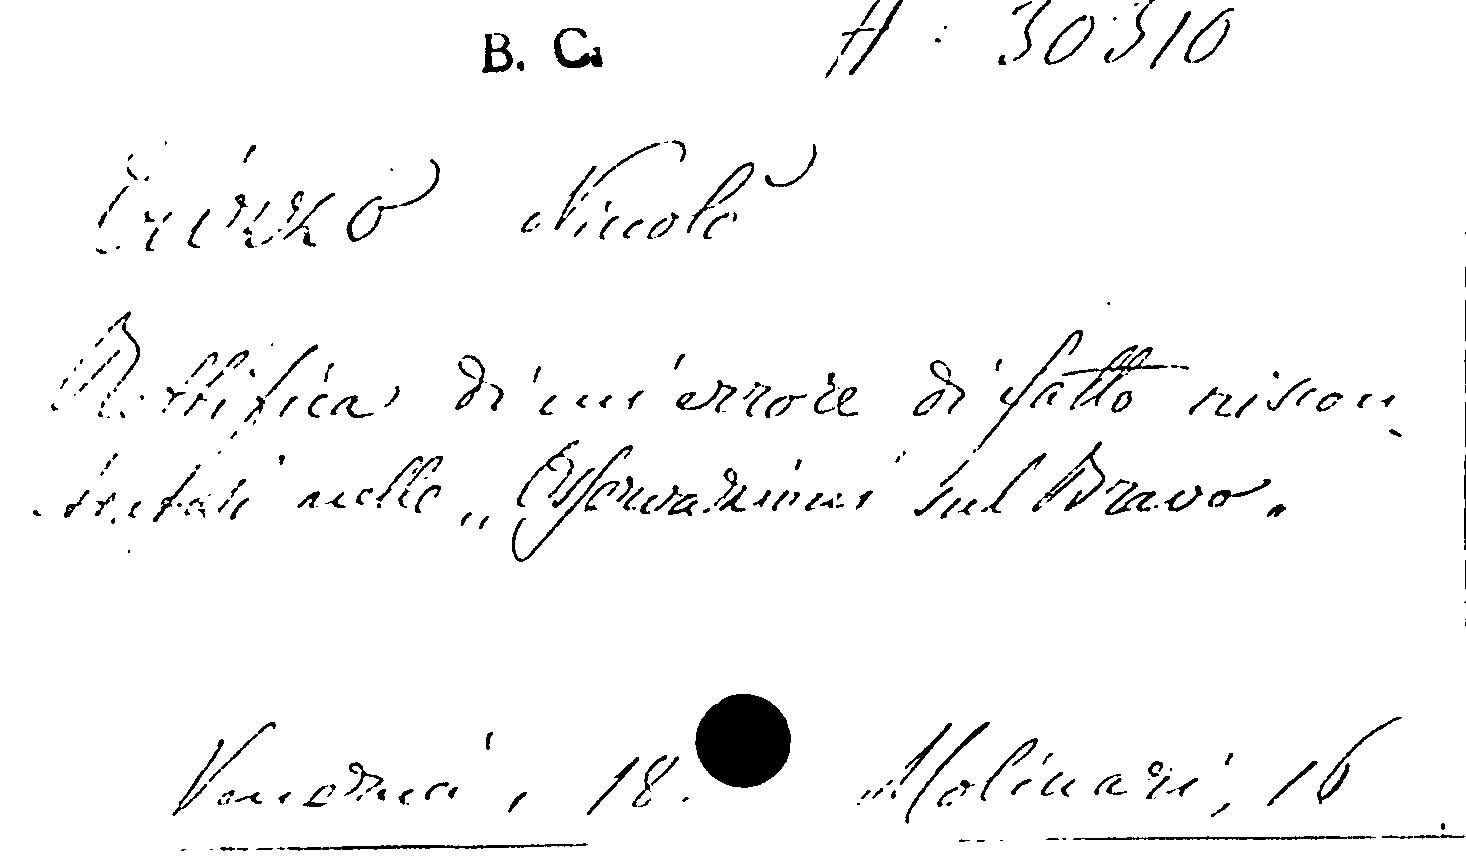 B. C. A : 30310
Erizzo Niccolò
Rettifica di un' errore di fatto riscon-
tratasi nelle „ Osservazioni sul Bravo.
Venezia, 18. Molinari, 16